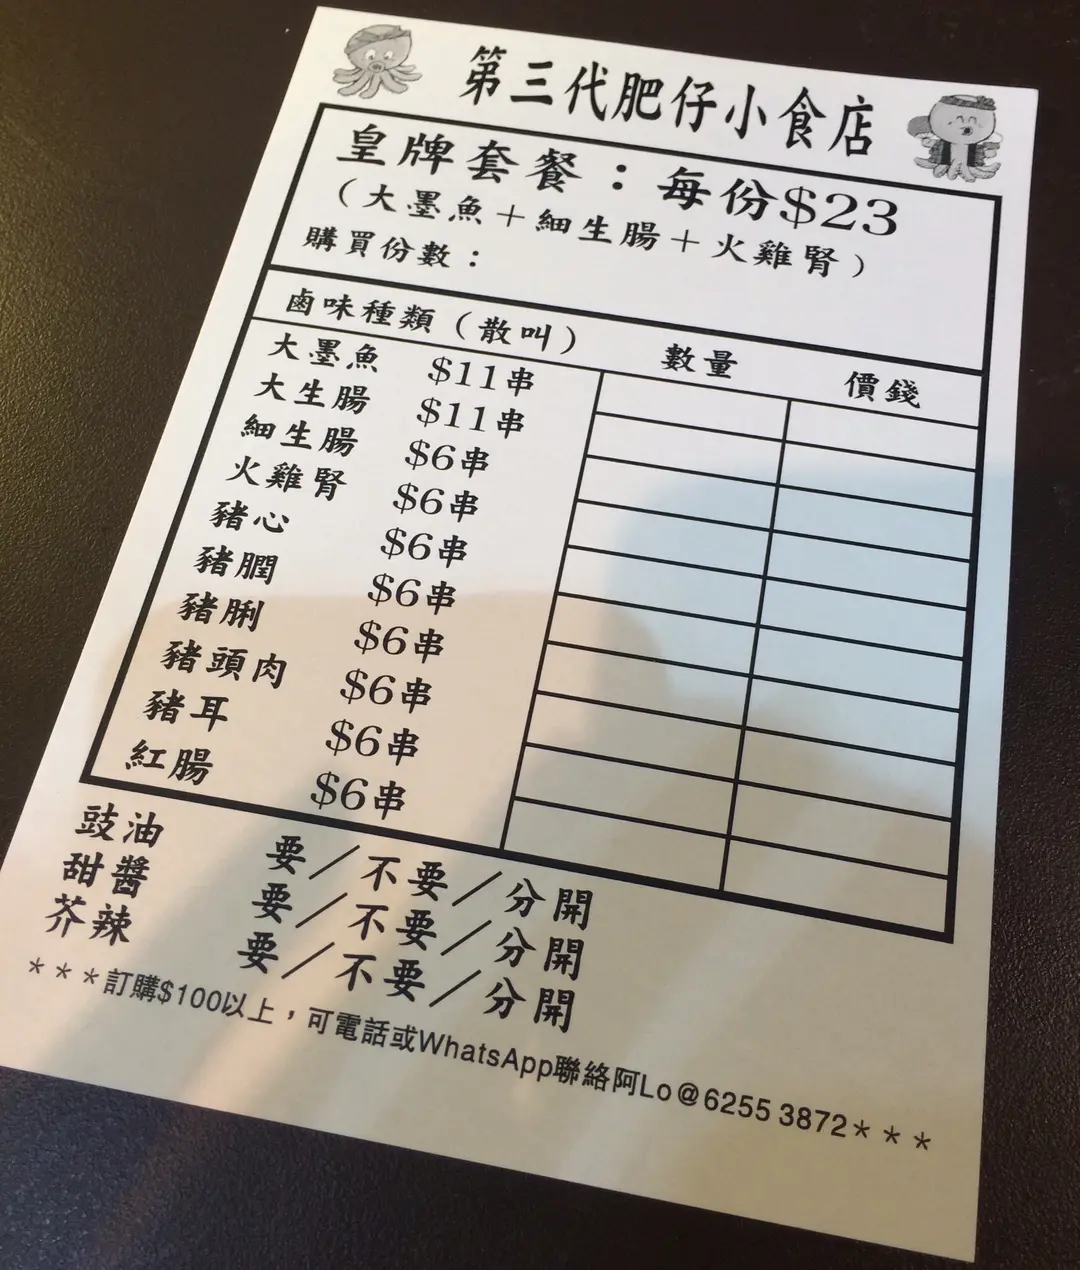 第三代肥仔小食店
皇牌套餐：每份$23
（大墨魚＋細生腸＋火雞腎）
購買份數：
鹵味種類（散叫） 數量 價錢
大墨魚 $11串
大生腸 $11串
細生腸 $6串
火雞腎 $6串
豬心 $6串
豬膶 $6串
豬脷 $6串
豬頭肉 $6串
豬耳 $6串
紅腸 $6串
豉油 要／不要／分開
甜醬 要／不要／分開
芥辣 要／不要／分開
＊＊＊訂購$100以上，可電話或WhatsApp聯絡阿Lo@6255 3872＊＊＊